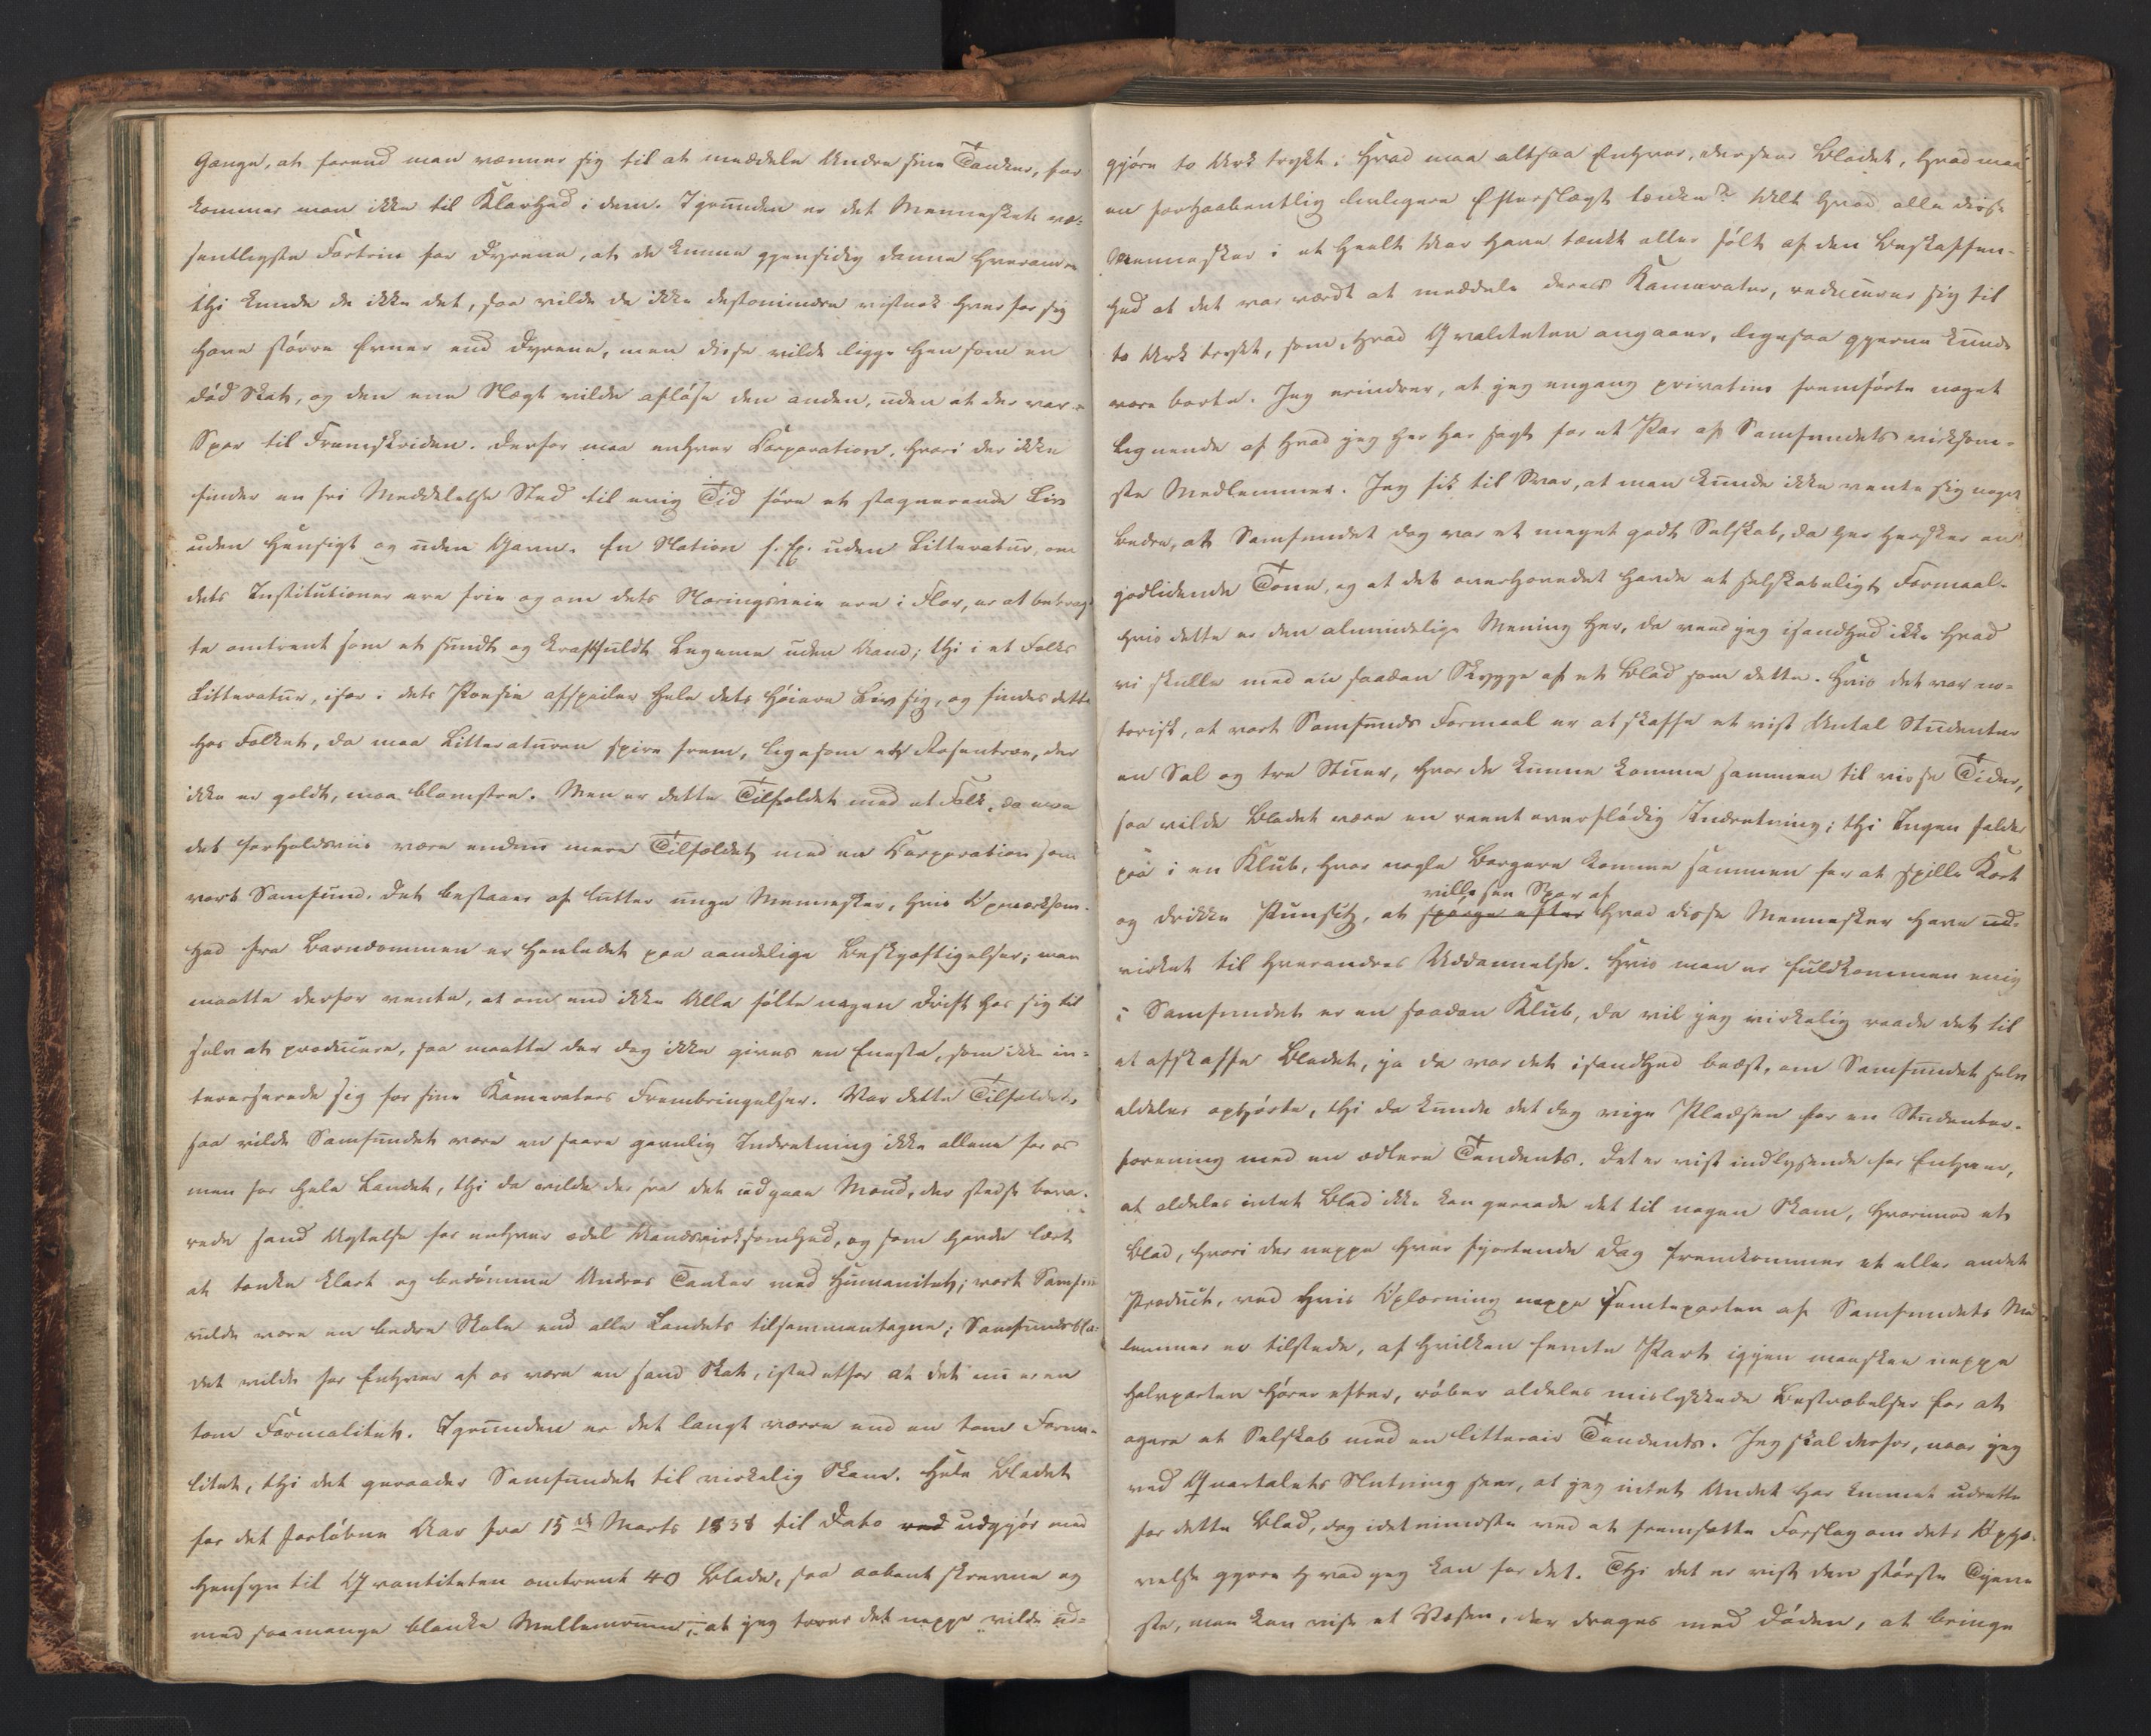 Gange, at forend man vænner sig til at meddele Andre sine Tanker, før
kommer man ikke til Klarhed i dem. I grunden er det Menneskets væ-
sentligste Fortrin for Dyrene, at de kunne gjensidig danne hverandre
thi kunde de ikke det, saa vilde de ikke destomindre vistnok hver for sig
have større Evner end Dyrene, men disse vilde ligge hen som en
død Skat, og den ene Slægt vilde afløse den anden, uden at der var
Spor til Fremskriden. Derfor maa enhver Corporation, hvori der ikke
finder en fri Meddelelse Sted til evig Tid føre et stagnerende Liv
uden Hensigt og uden Gavn. En Nation f. Ex. uden Litteratur, om
dets Institutioner ere frie og om dets Næringsveie ere i Flor, er at betrag-
te omtrent som et sundt og kraftfuldt Legeme uden Aand; thi i et Folks
Litteratur, især i dets Poesie afspeiler hele dets høiere Liv sig, og findes dette
hos Folket, da maa Litteraturen spire frem, ligesom et Rosentræe, der
ikke er goldt, maa blomstre. Men er dette Tilfældet med et Folk, da maa
det forholdsviis være endnu mere Tilfældet med en Corporation som
vort Samfund. Det bestaaer af lutter unge Mennesker, hvis Opmærksom-
hed fra Barndommen er henledet paa aandelige Beskjæftigelser; man
maatte derfor vente, at om end ikke Alle følte nogen Drift hos sig til
selv at producere, saa maatte der dog ikke gives en Eneste, som ikke in-
teresserede sig for sine Kameraters Frembringelser. Var dette Tilfældet,
saa vilde Samfundet være en saare gavnlig Indretning ikke allene for os
men for hele Landet, thi da vilde der fra det udgaae Mænd, der stedse beva-
rede sand Agtelse for enhver ædel Aandsvirksomhed, og som havde lært
at tænke klart og bedømme Andres Tanker med Humanitet; vort Samfun
vilde være en bedre Skole end alle Landets tilsammentagne; Samfundsbla-
det vilde for Enhver af os være en sand Skat, istedetfor at det nu er en
tom Formalitet. I grunden er det langt værre end en tom Forma-
litet, thi det geraader Samfundet til virkelig Skam. Hele Bladet
for det forløbne Aar fra 15de Marts 1838 til Dato ved udgjør med
Hensyn til Qvantiteten omtrent 40 Blade, saa aabent skrevne og
med saamange blanke Mellemrum, at jeg troer det neppe vilde ud-
gjøre to Ark trykt; Hvad maa altsaa Enhver, der seer Bladet, hvad maa
en forhaabentlig livligere Efterslægt tænke? Alt hvad alle disse
Mennesker i et heelt Aar have tænkt eller følt af den Beskaffen-
hed at det var værdt at meddele deres Kamerater, reducerer sig til
to Ark trykt, som, hvad Qvaliteten angaaer, ligesaa gjerne kunde
være borte. Jeg erindrer, at jeg engang privatim fremførte noget
lignende af hvad jeg her har sagt for et Par af Samfundets virksom-
ste Medlemmer. Jeg fik til Svar, at man kunde ikke vente sig noget
bedre, at Samfundet dog var et meget godt Selskab, da her hersker en
godlidende Tone, og at det overhovedet havde et selskabeligt Formaal.
Hvis dette er den almindelige Mening her, da veed jeg isandhed ikke hvad
vi skulle med en saadan Skygge af et Blad som dette. Hvis det var no-
torisk, at vort Samfunds Formaal er at skaffe et vist Antal Studenter
en Sal og tre Stuer, hvor de kunne komme sammen til visse Tider,
saa vilde Bladet være en reent overflødig Indretning; thi Ingen falder
paa i en Klub, hvor nogle Borgere komme sammen for at spille Kort
ville see Spor af
og drikke Punsch, at spørge efter hvad disse Mennesker have ud-
virket til hverandres Uddannelse. Hvis man er fuldkommen enig
i Samfundet er en saadan Klub, da vil jeg virkelig raade det til
at afskaffe Bladet, ja da var det isandhed bedst, om Samfundet selv
aldeles ophørte, thi da kunde det dog vige Pladsen for en Studenter-
forening med en ædlere Tendents. Det er vist indlysende for Enhver,
at aldeles intet Blad ikke kan geraade det til nogen Skam, hvorimod et
Blad, hvori der neppe hver fjortende Dag fremkommer et eller andet
Product, ved hvis Oplæsning neppe Femteparten af Samfundets Med
lemmer er tilstede, af hvilken femte Part igjen maaskee neppe
Halvparten hører efter, røber aldeles mislykkede Bestræbelser for at
agere et Selskab med en litterair Tendents. Jeg skal derfor, naar jeg
ved Qvartalets Slutning seer, at jeg intet Andet har kunnet udrette
for dette Blad, dog idetmindste ved at fremsætte Forslag om dets Ophæ-
velse gjøre hvad jeg kan for det. Thi det er vist den største Tjene
ste, man kan vise et Væsen, der drages med Døden, at bringe